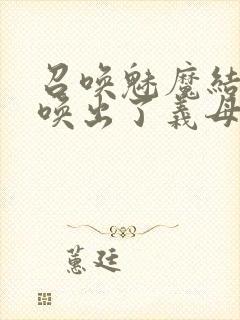 召唤魅魔结
唤出了义母
蕙廷